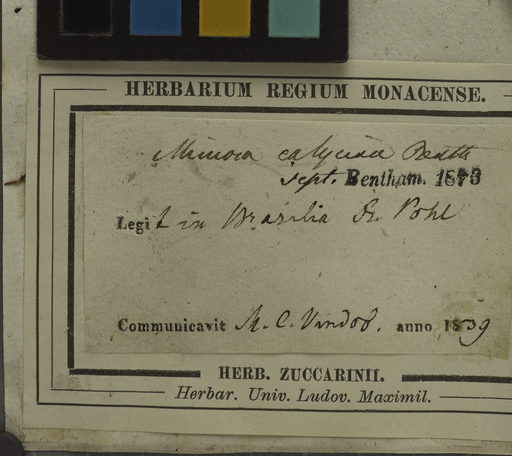 HERBARIUM REGIUM MONACENSE.
Mimosa calycina Benth
Sept. Bentham. 1873
Legit in Brasilia Dr. Pohl
Communicavit M. C. Vindob. anno 1839
HERB. ZUCCARINII.
Herbar. Univ. Ludov. Maximil.